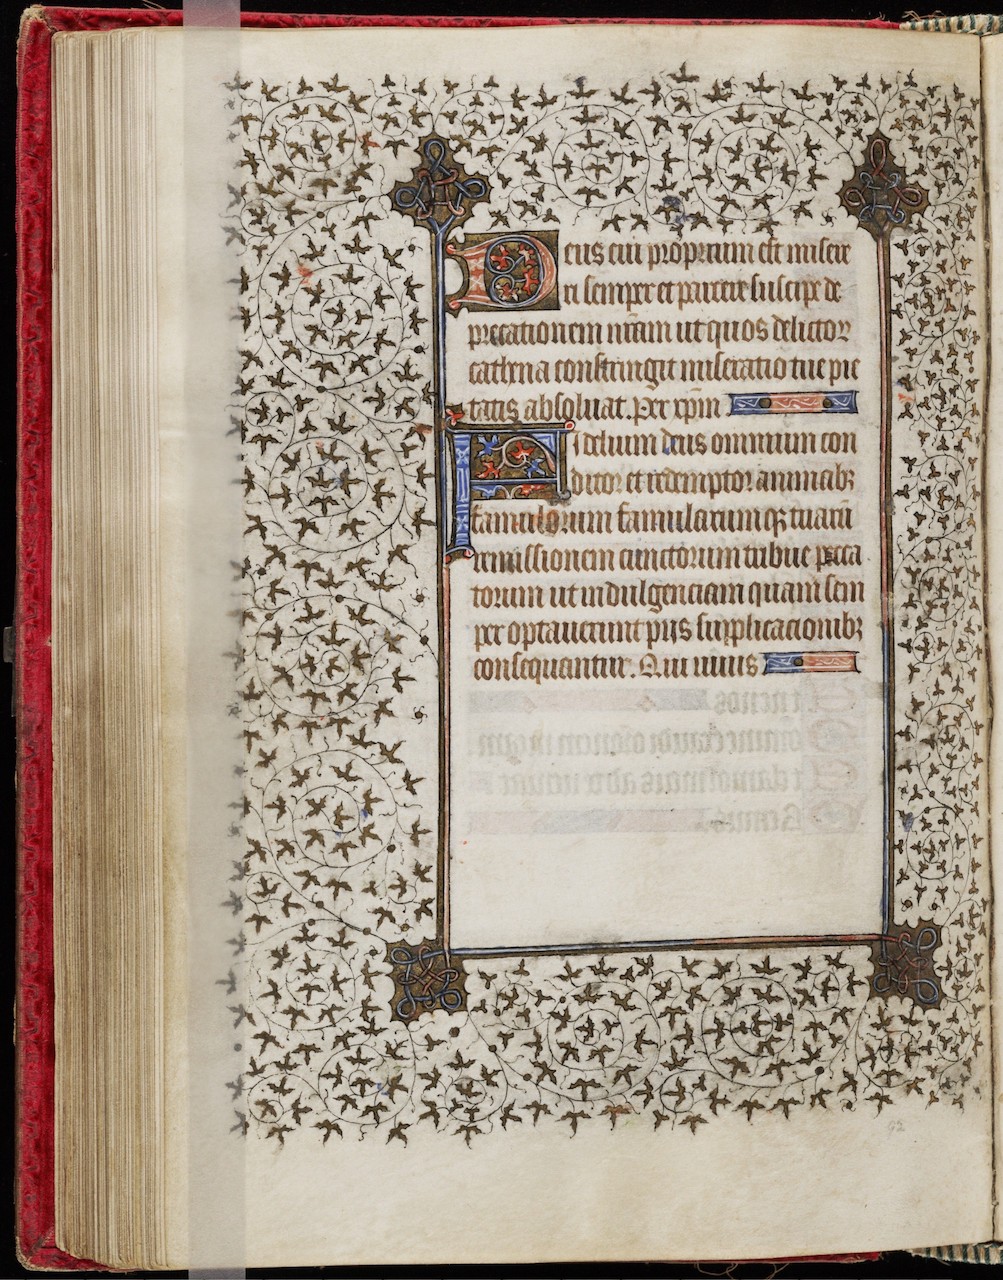 Deus cui proprium est misere
ri semper et parcere suscipe de
precationem nr̄am ut quos delictoꝝ
cathena constringit miseratio tue pie
tatis absoluat. Per xp̄m
Fidelium deus omnium con
ditor et redemptor animabꝫ
famulorum famularumqꝫ tuarū
remissionem cunctorum tribue pecca
torum ut indulgenciam quam sem
per optauerunt piis supplicacionibꝫ
consequantur. Qui uiuis
92